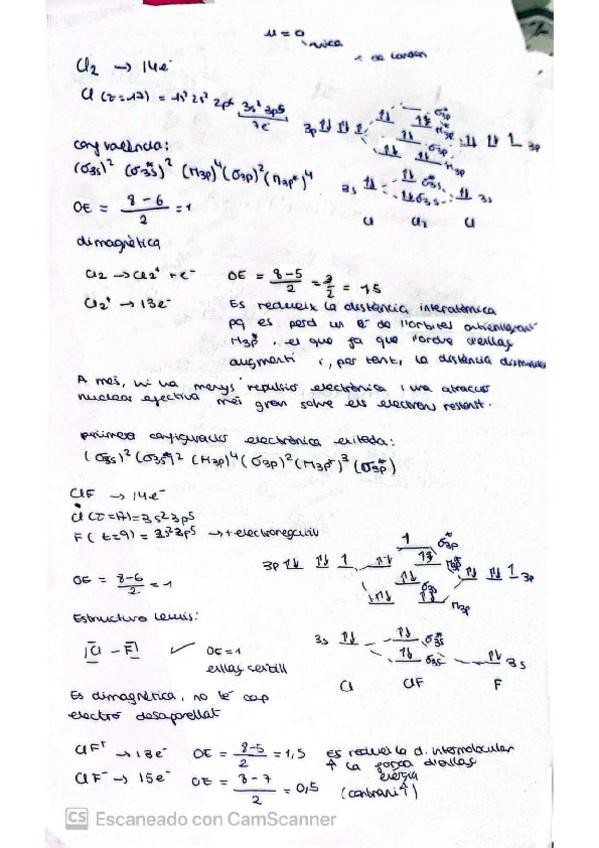 μ = 0
Cl2 → 14e-
Cl (z=17) = 1s² 2s² 2p⁶ 3s² 3p⁵
7e-
conf valència:
(σ3s)² (σ3s*)² (π3p)⁴ (σ3p)² (π3p*)⁴
OE = 8-6/2 = 1
3p σ3p* π3p* σ3p π3p 3p
3s σ3s* σ3s 3s
Cl Cl2 Cl
dimagnètica
Cl2 → Cl2⁺ + e- OE = 8-5/2 = 3/2 = 1,5
Cl2⁺ → 13e-
Es redueix la distància interatòmica
pq es perd un e- de l'orbital antienllaçant
π3p*, es que fa que l'ordre d'enllaç
augmenti i, per tant, la distància disminueix
A més, hi ha menys repulsió electrònica i una atracció
nuclear efectiva més gran sobre els electrons restant.
primera configuració electrònica exitada:
(σ3s)² (σ3s*)² (π3p)⁴ (σ3p)² (π3p*)³ (σ3p*)
ClF → 14e-
Cl (z=17) = 3s² 3p⁵
F (z=9) = 2s² 2p⁵ → + electronegatiu
OE = 8-6/2 = 1
3p σ3p* π3p* σ3s π3p 3p
Estructura Lewis:
|Cl - F| ✓ OE=1
enllaç senzill
3s σ3s* σ3s 3s
Cl ClF F
Es dimagnètica, no té cap
electró desaparellat
ClF⁺ → 13e- OE = 8-5/2 = 1,5 es redueix la d. intermolecular
↑ la força d'enllaç
energia
ClF⁻ → 15e- OE = 8-7/2 = 0,5 (contrari ↑)
CS Escaneado con CamScanner